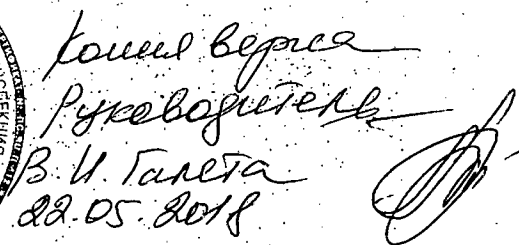 Копия верна
Руководитель
В. И. Галета
22.05.2018